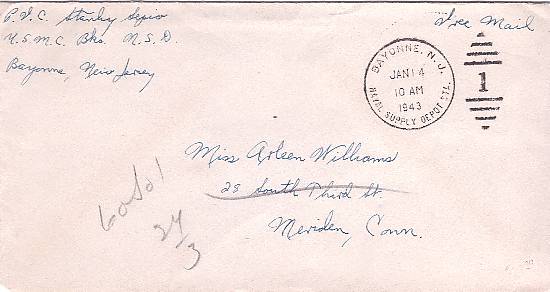 P.F.C. Stanley
U.S.M.C. Bks. N.S.D.
Bayonne, New Jersey
Free Mail
BAYONNE, N.J.
JAN 14
10 AM
1943
NAVAL SUPPLY DEPOT STA.
1
Miss Arleen Williams
28 South Third St.
Meriden, Conn.
24/3